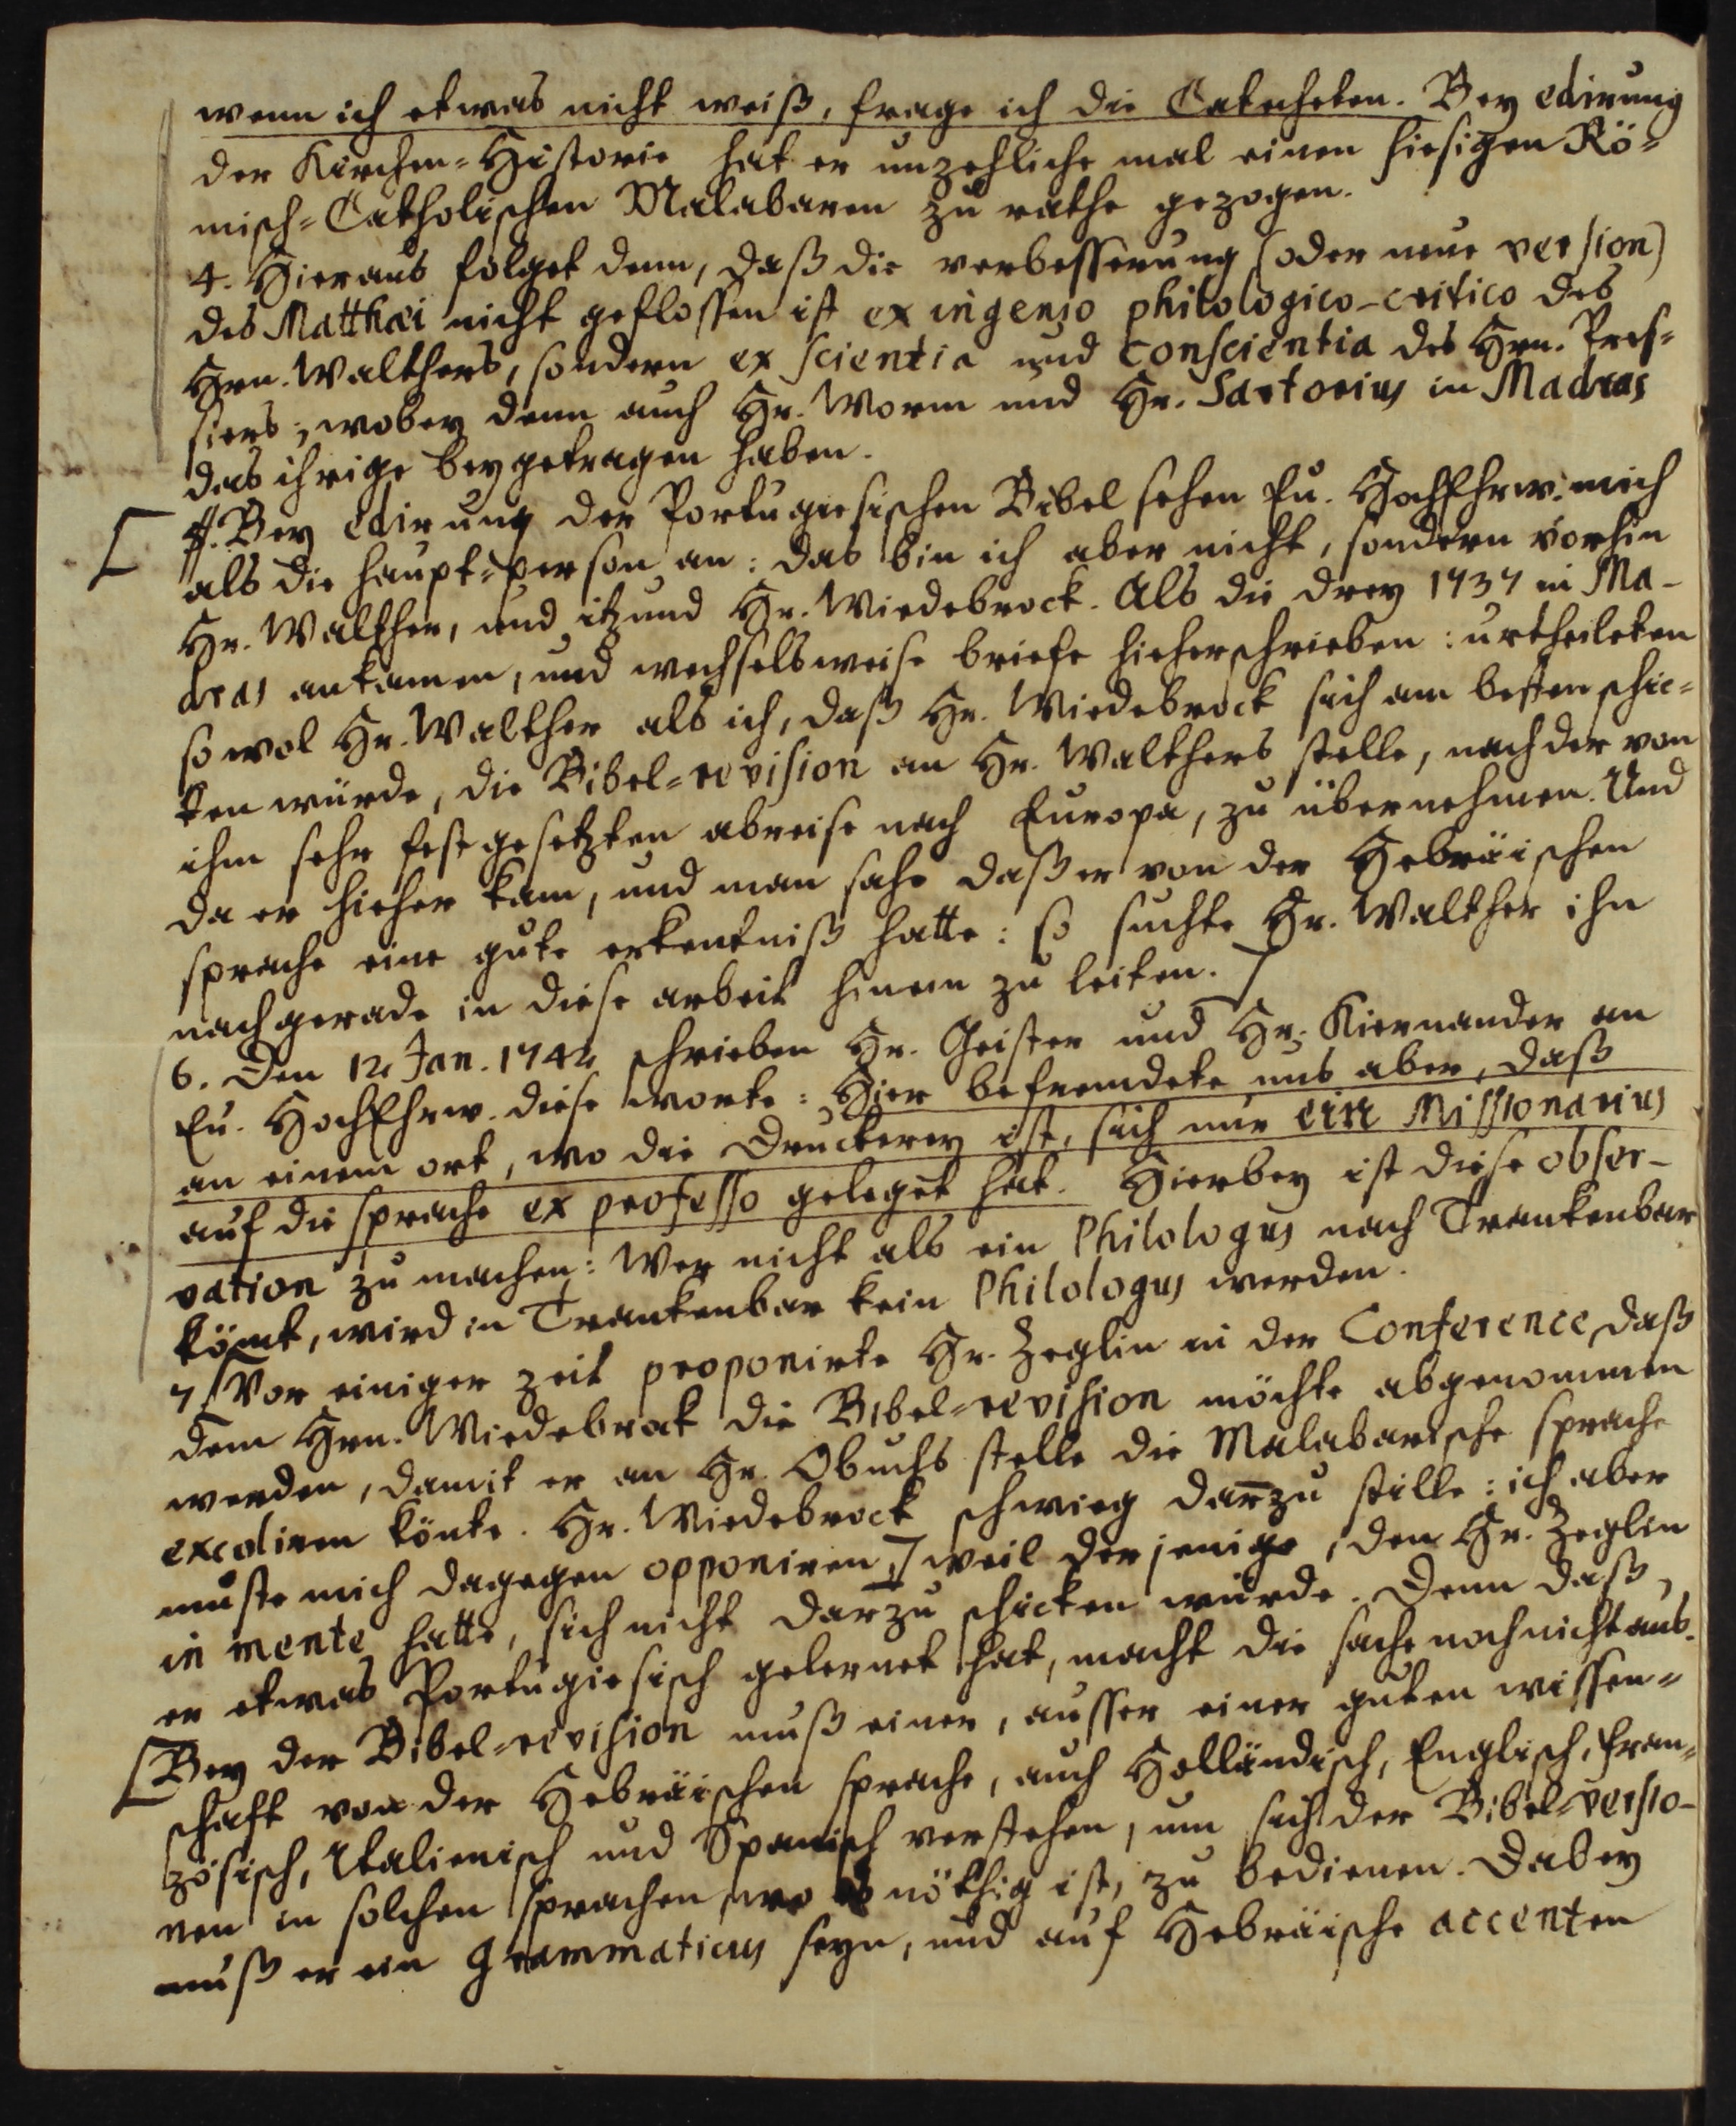 wenn ich etwas nicht weiß, frage ich die Catecheten. Bey edirung
der Kirchen-Historie hat er unzehliche mal einen hiesigen Rö-
misch-Catholischen Malabaren zu rathe gezogen.
4. Hieraus folget denn, daß die verbesserung (oder neue version)
des Matthæi nicht geflossen ist ex ingenio philologico-critico des
Hrn. Walthers, sondern ex scientia und conscientia des Hrn. Pres-
siers; wobey denn auch Hr. Worm und Hr. Sartorius in Madras
das ihrige beygetragen haben.
[ 5. Bey edirung der Portugiesischen Bibel sehen Eu. HochEhrw. mich
als die haupt-person an: das bin ich aber nicht, sondern vorhin
Hr. Walther, und itzund Hr. Wiedebrock. Als die drey 1737 in Ma-
dras ankamen, und wechselsweise briefe hieherschrieben: urtheileten
so wol Hr. Walther als ich, daß Hr. Wiedebrock sich am besten schic-
ken würde, die Bibel-revision an Hr. Walthers stelle, nach der von
ihm sehr fest gesetzten abreise nach Europa, zu übernehmen. Und
da er hieher kam, und man sahe daß er von der Hebräischen
sprache eine gute erkentniß hatte: so suchte Hr. Walther ihn
nachgerade in diese arbeit hinein zu leiten. ]
6. Den 12 Jan. 1742 schrieben Hr. Geister und Hr. Kiernander an
Eu. HochEhrw. diese worte: Hier befremdete uns aber, daß
an einem ort, wo die Druckerey ist, sich nur ein Missionarius
auf die sprache ex professo geleget hat. Hierbey ist diese obser-
vation zu machen: Wer nicht als ein Philologus nach Trankenbar
kömt, wird in Trankenbar kein Philologus werden.
7. [Vor einiger zeit proponirte Hr. Zeglin in der Conference, daß
dem Hrn. Wiedebrock die Bibel-revision möchte abgenommen
werden, damit er an Hr. Obuchs stelle die Malabarische sprache
excoliren könte. Hr. Wiedebrock schwieg darzu stille: ich aber
muste mich dagegen opponiren,] weil derjenige, den Hr. Zeglin
in mente hatte, sich nicht darzu schicken würde. Denn daß
er etwas Portugiesisch gelernet hat, macht die sache noch nicht aus.
[Bey der Bibel-revision muß einer, ausser einer guten wissen-
schaft von der Hebräischen sprache, auch Holländisch, Englisch, Fran-
zösisch, Italienisch und Spanisch verstehen, um sich der Bibel-versio-
nen in solchen sprachen, wo es nöthig ist, zu bedienen. Dabey
muß er ein Grammaticus seyn, und auf Hebräische accenten